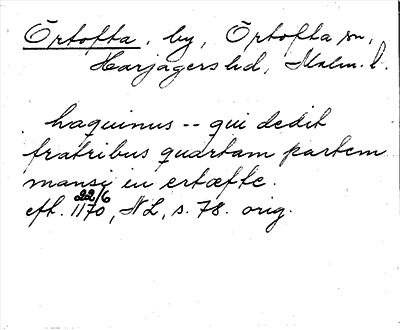 Örtofta, by, Örtofta sn,
Harjagers hd, Malm. l.
haquinus -- qui dedit
fratribus quartam partem
mansi in ertæfte.
eft. 22/6 1170, NL, s. 78. orig.